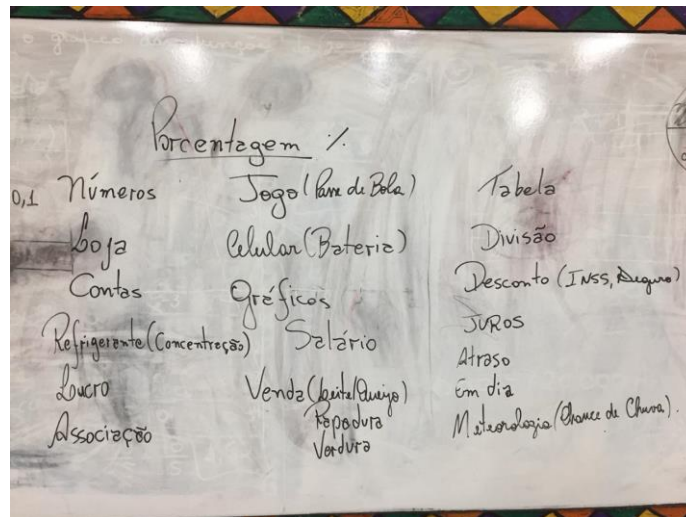 Porcentagem %
0,1 Números
Loja
Contas
Refrigerante (Concentração)
Lucro
Associação
Jogo (Passe de Bola)
Celular (Bateria)
Gráficos
Salário
Venda (Leite/Queijo)
Rapadura
Verdura
Tabela
Divisão
Desconto (INSS, Seguro)
JUROS
Atraso
Em dia
Meteorologia (Chance de Chuva).